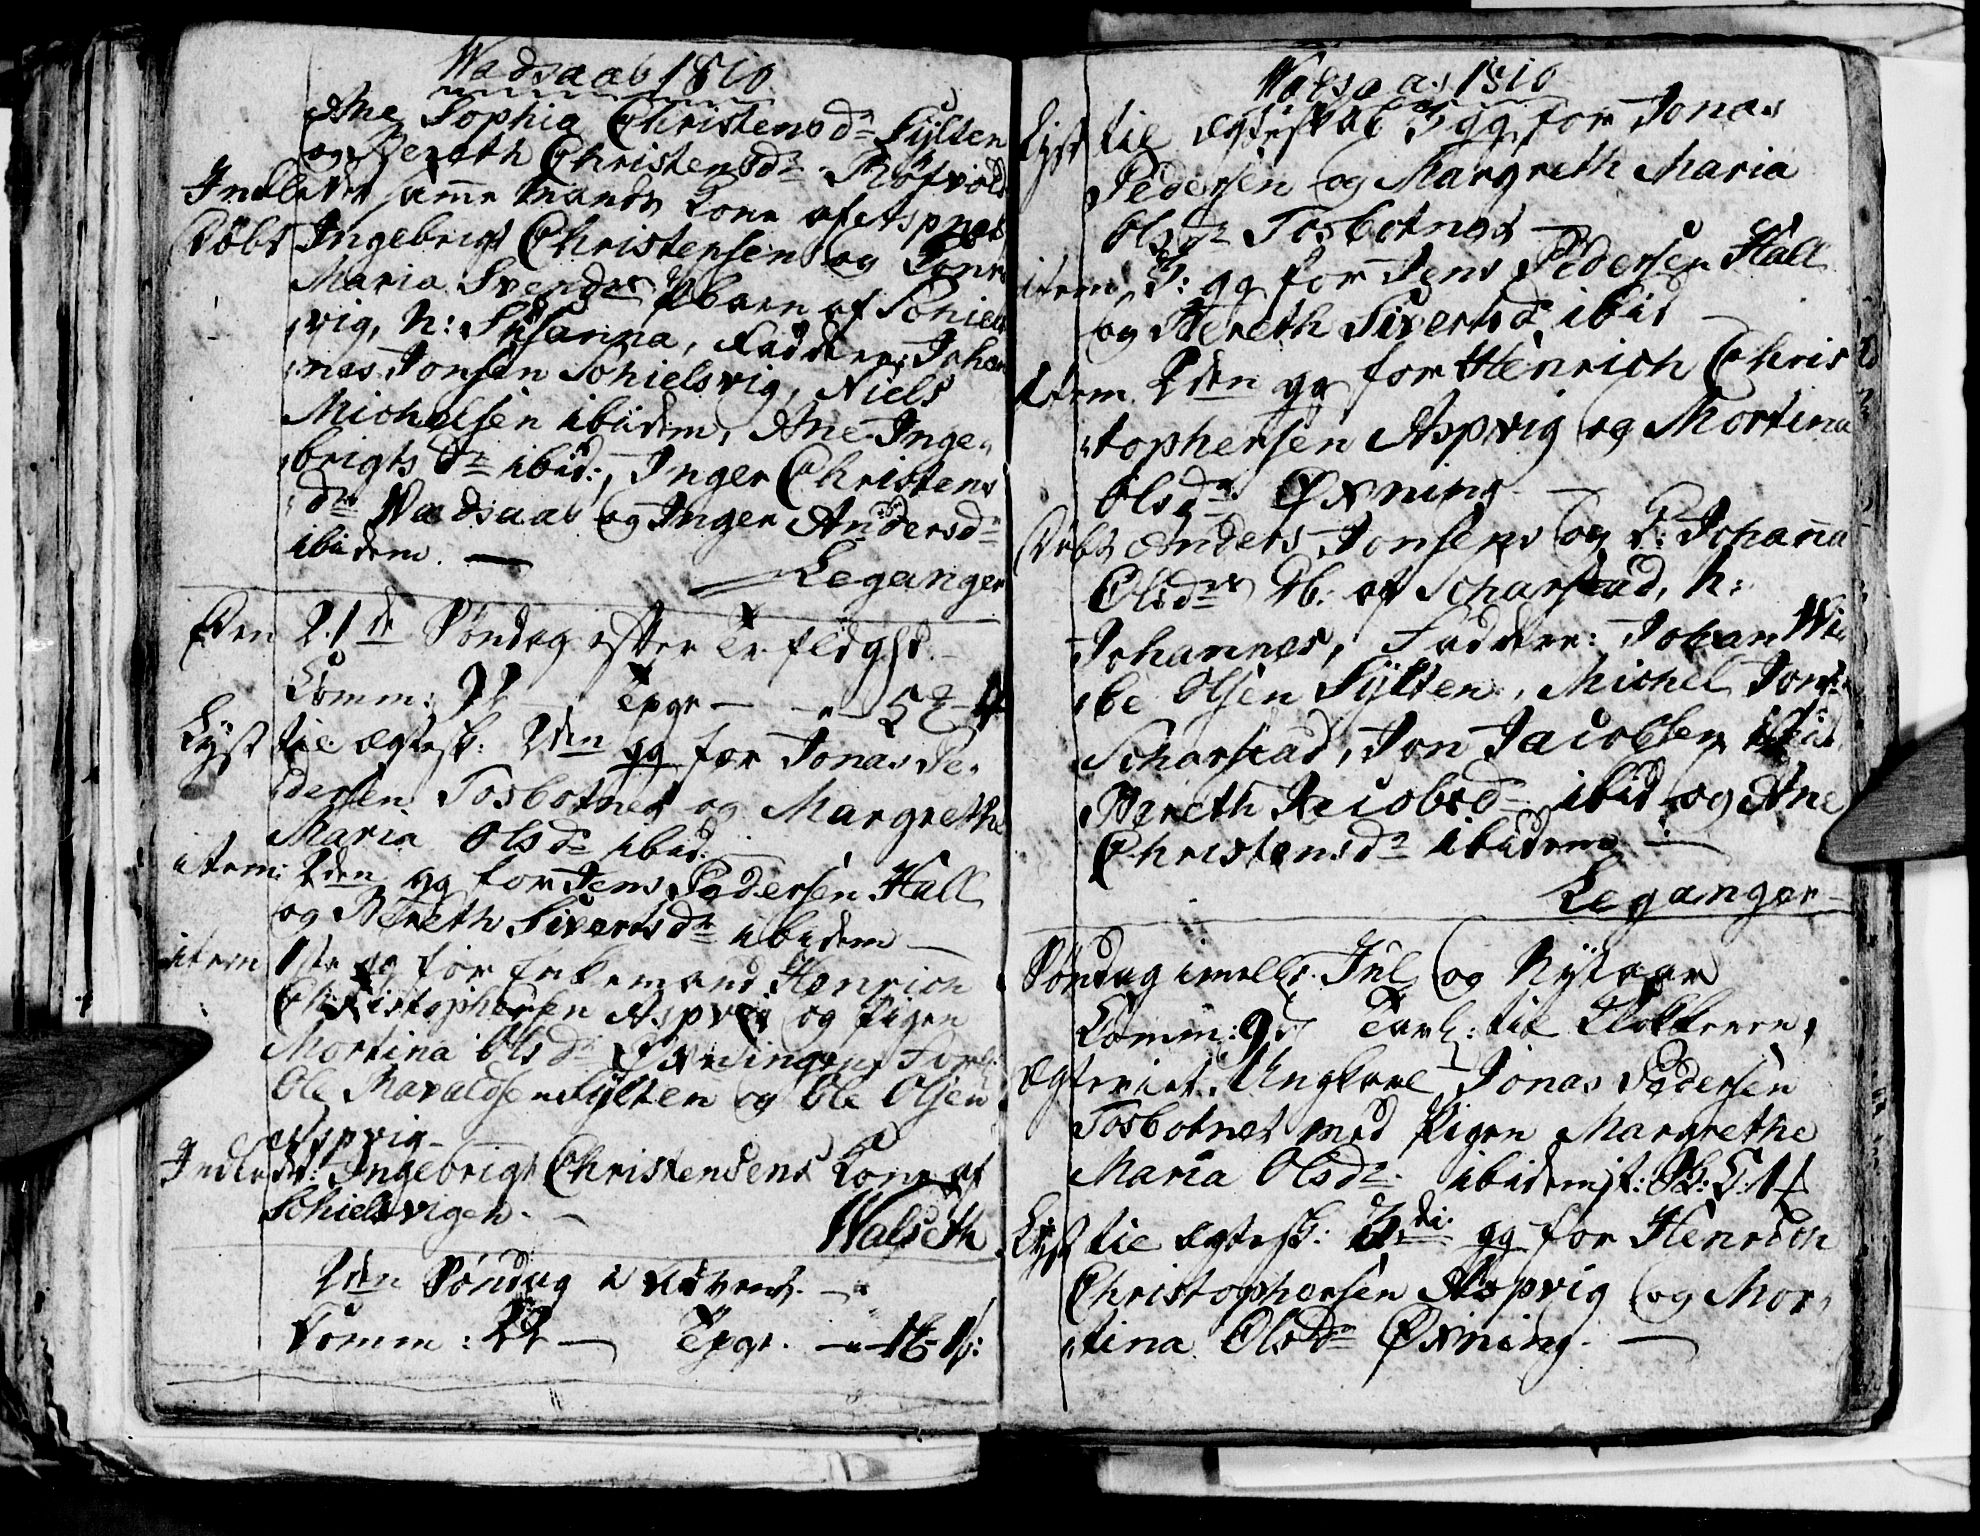 Wadsaab 1810
Ane Sophia Christensdr Sylten
og Bereth Christensdr Røtvold
Indledet samme Mands Kone af Aspnes
Døbt Ingebrigt Christensen og Kone
Maria Svendsdr Pbarn af Schiels
vig, N: Susanna, Faddere: Johan
nes Jonsen Schielsvig, Niels
Michelsen ibidem, Ane Inge
brigts dr ibid:, Inger Christens
dr Wadsaab og Inger Andersdr
ibidem. —
Leganger
Den 21de Søndag efter Trefoldghd.
Comm: 21 — Tpgr —
Lyst til Ægtesk: 2den gg for Jonas Pe
dersen Tosbotnet og Margrethe
Maria Olsdr ibid: —
item: 2den gg for Jens Pedersen Hall
og Bereth Sivertsdr ibidem —
item 1ste gg for Enkemand Henrich
Christophersen Aspvig og Pigen
Mortina Olsdr Øxningen, Forl:
Ole Haraldsen Sylten og Ole Olsen
Aspvig —
Indledt: Ingebrigt Christensens Kone af
Schielsvigen. —
Walseth
2den Søndag i Advent. —
Comm: 22 — Tpgr. —
Wadsaas 1810
Lyst til Ægteskab 3 gg for Jonas
Pedersen og Margreth Maria
Olsdr Tosbotnet —
item 3: gg for Jens Pedersen Hall
og Bereth Sivertsdr ibid —
item 2den gg for Henrich Chris
tophersen Aspvig og Mortina
Olsdr Øxning —
Døbt Anders Jonsens og K: Johanna
Olsdrs Pb: af Scharstad, N:
Johannes, Faddere: Johan Wi
be Olsen Sylten, Michel Jons
Scharstad, Jon Jacobsen ibid
Bereth Jacobsdr ibid og Ane
Christensdr ibidem —
Leganger
Søndag imell: Jul og Nytaar
Comm: 9 Tavl: til Klokkeren,
Ægteviet: Ungkarl Jonas Pedersen
Tosbotnet med Pigen Margrethe
Maria Olsdr ibidem
Lyst til Ægtesk: 3di gg for Henrich
Christophersen Aspvig og Mor
tina Olsdr Øxning. —